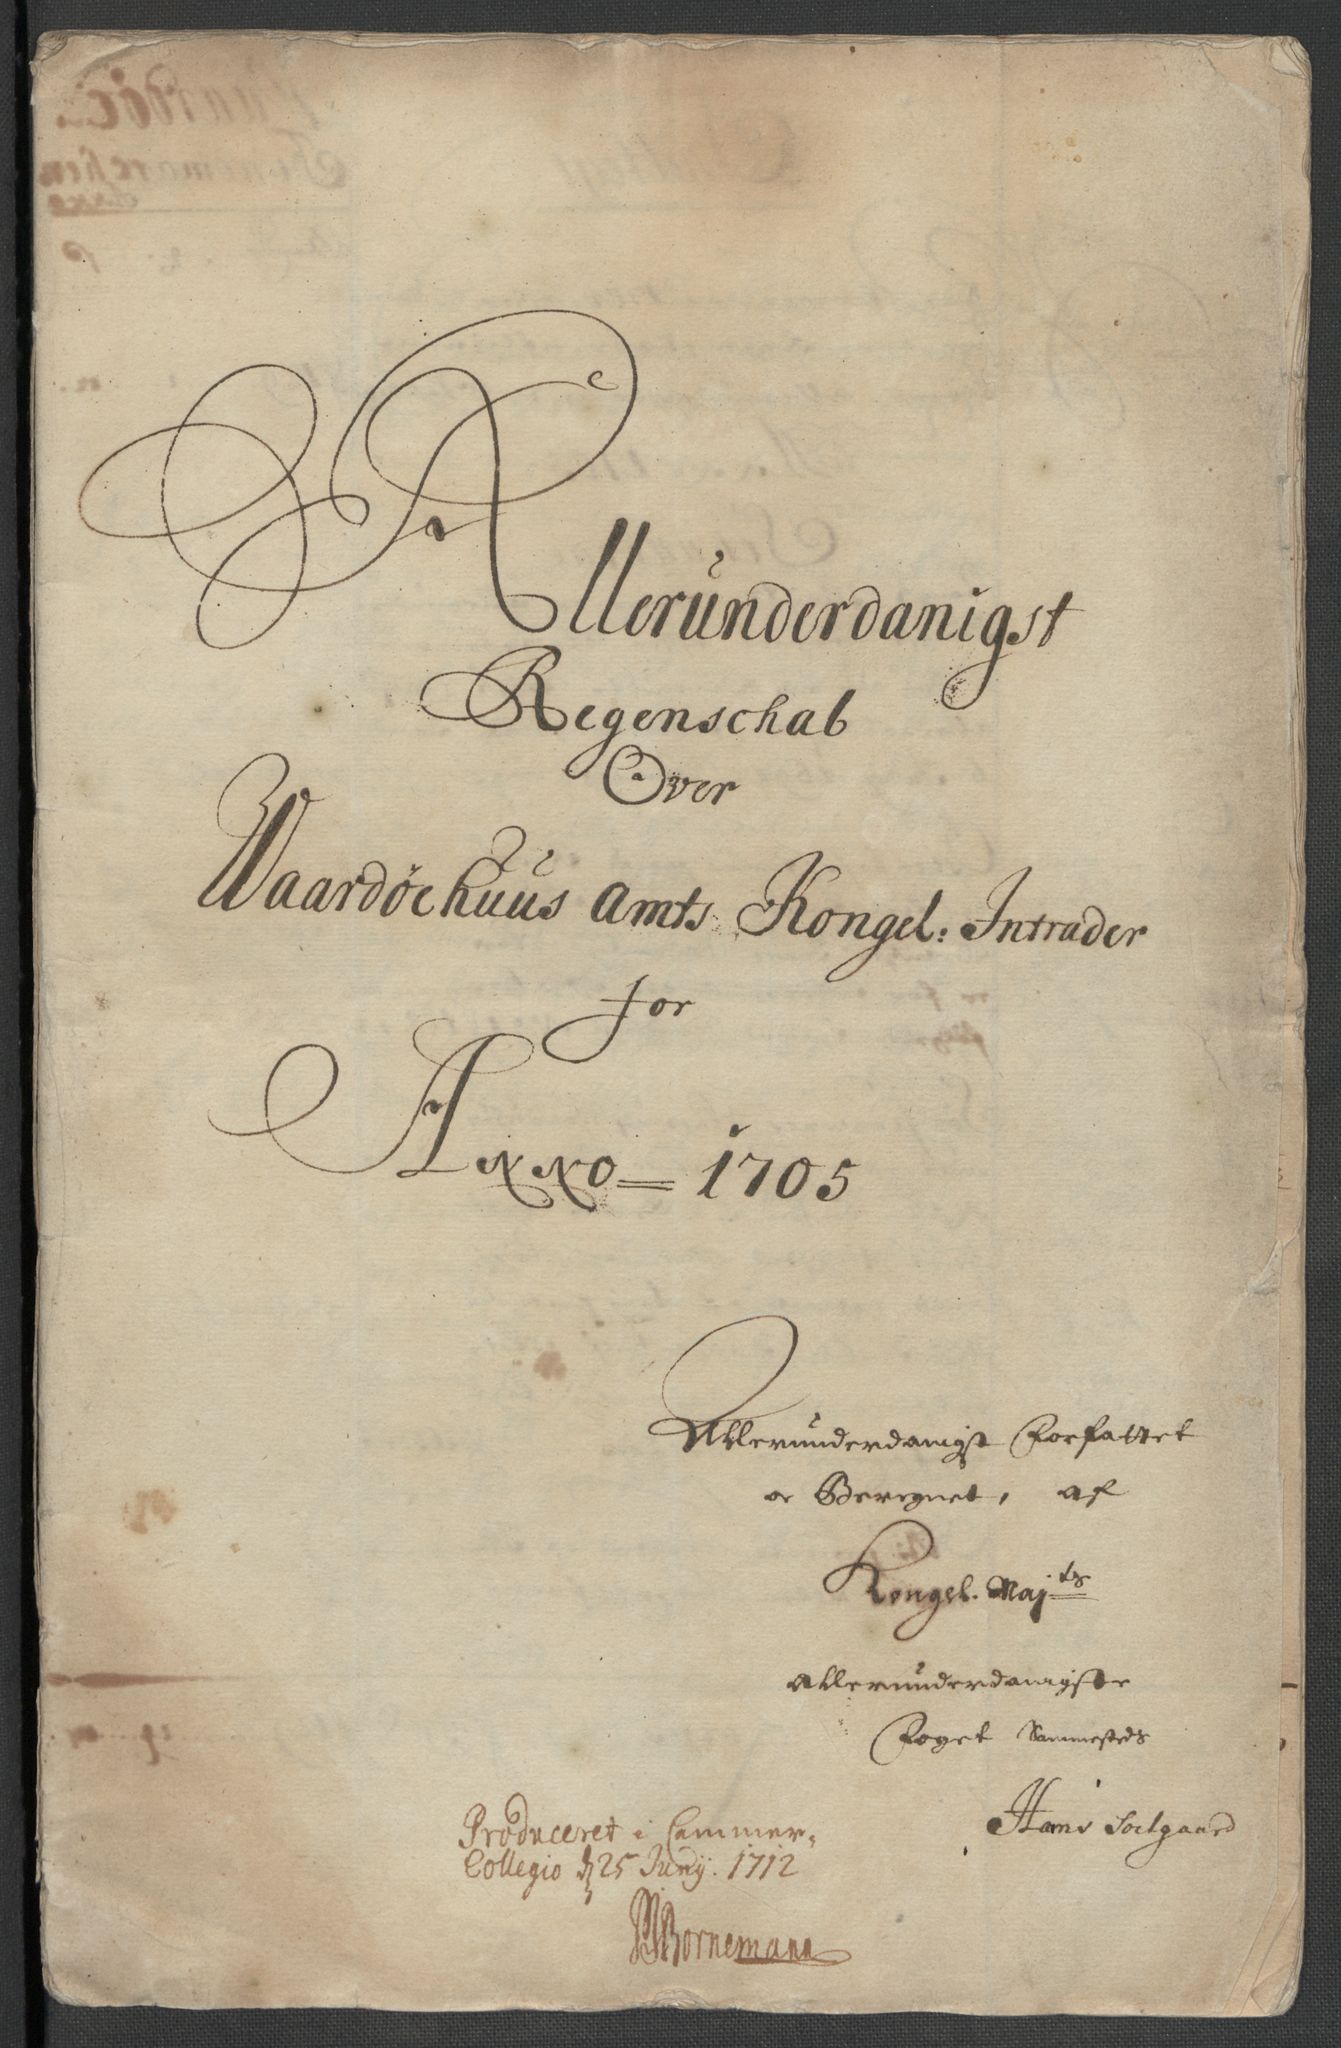 Allerunderdanigst
Regenschab
Over
Waardøehuus Amts Kongel: Intrader
for
Anno 1705
Allerunderdanigst Forfattet
oc Beregnet, af
Kongel. Maj.ts
allerunderdanigste
Foget Sammesteds
Hans Soelgaard
Produceret i Cammer-
Collegio d 25 Junij. 1712
Bornemann